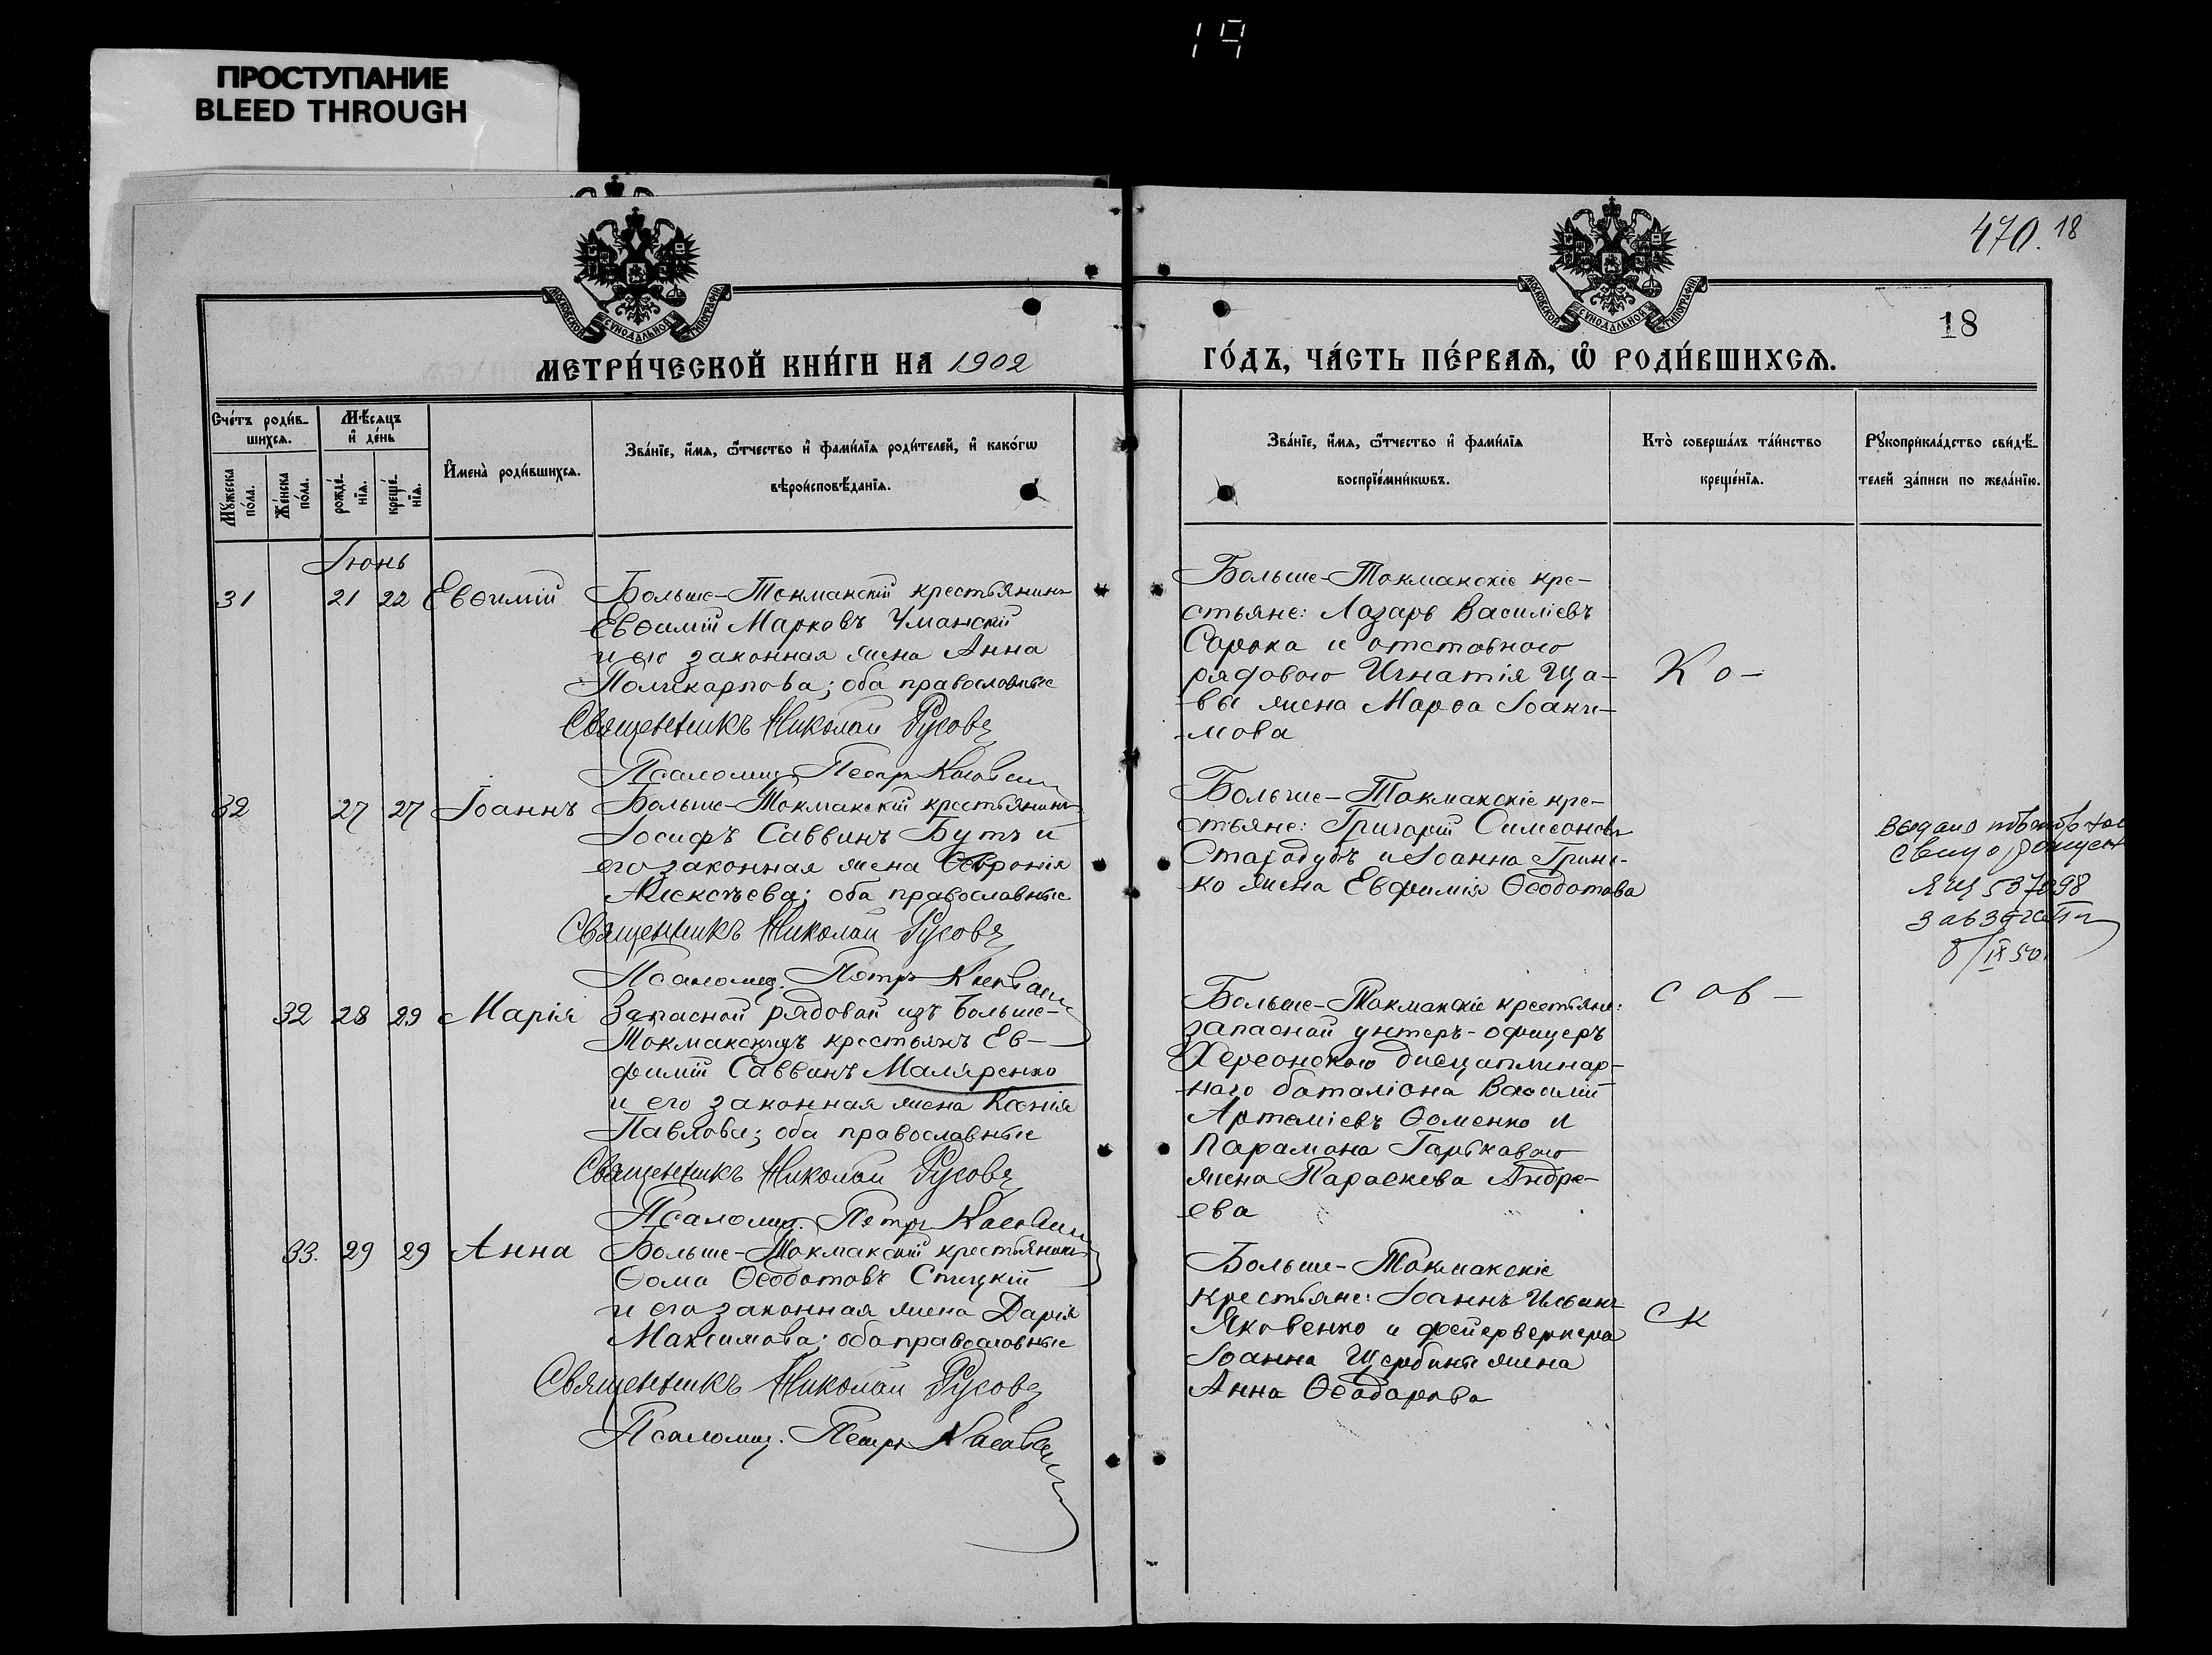 19
ПРОСТУПАНИЕ
BLEED THROUGH
470. 18
18
МОСКОВСКОЙ СѴНОДАЛЬНОЙ ТИПОГРАФІИ
МОСКОВСКОЙ СѴНОДАЛЬНОЙ ТИПОГРАФІИ
МЕТРИ́ЧЕСКОЙ КНИ́ГИ НА 1902
ГО́ДЪ, ЧА́СТЬ ПЕ́РВАѦ, Ѽ РОДИ́ВШИХСѦ.
Сче́тъ роди́в-
шихсѧ.
Мꙋ́жеска по́ла.
Же́нска по́ла.
Мѣ́сѧцъ
и҆ де́нь
рожде́-
нїѧ.
креще́-
нїѧ.
И҆мена̀ роди́вшихсѧ.
Зва́нїе, и҆́мѧ, ѻ҆́тчество и҆ фами́лїѧ роди́телей, и҆ како́гѡ
вѣроисповѣ́данїѧ.
Зва́нїе, и҆́мѧ, ѻ҆́тчество и҆ фами́лїѧ
воспрїе́мникѡвъ.
Кто̀ соверша́лъ та́инство
креще́нїѧ.
Рꙋкоприкла́дство свидѣ́-
телей за́писи по жела́нїю.
Іюнь
31 21 22 Евѳимій
Больше-Токмакскій крестьянинъ
Евѳимій Марковъ Уманскій
и его законная жена Анна
Поликарпова; оба православные
Священникъ Николай Русовъ
Псаломщ. Петръ
Больше-Токмакскіе кре-
стьяне: Лазарь Василіевъ
Сорока и отставного
рядового Игнатія Ща-
вы жена Марѳа Іоаки-
мова
Ко-
32 27 27 Іоаннъ
Больше-Токмакскій крестьянинъ
Іосифъ Саввинъ Бутъ и
его законная жена Ѳевронія
Алексѣева; оба православные
Священникъ Николай Русовъ
Псаломщ. Петръ
Больше-Токмакскіе кре-
стьяне: Григорій Симеоновъ
Стародубъ и Іоанна Грин-
ко жена Евфимія Ѳеодотова
выдано
537098
8/IX 50
32 28 29 Марія
Запасной рядовой изъ Больше-
Токмакскихъ крестьянъ Ев-
фимій Саввинъ Маляренко
и его законная жена Ксенія
Павлова; оба православные
Священникъ Николай Русовъ
Псаломщ. Петръ
Больше-Токмакскіе крестьяне:
запасной унтеръ-офицеръ
Херсонскаго дисциплинар-
наго баталіона Василій
Артеміевъ Ѳоменко и
Парамона Гарькаваго
жена Параскева Андре-
ева
сов-
33. 29 29 Анна
Больше-Токмакскій крестьянинъ
Ѳома Ѳеодотовъ Спицкій
и его законная жена Дарія
Максимова; оба православные
Священникъ Николай Русовъ
Псаломщ. Петръ
Больше-Токмакскіе
крестьяне: Іоаннъ Ильинъ
Яковенко и фейерверкера
Іоанна Щербины жена
Анна Ѳеодорова
ск